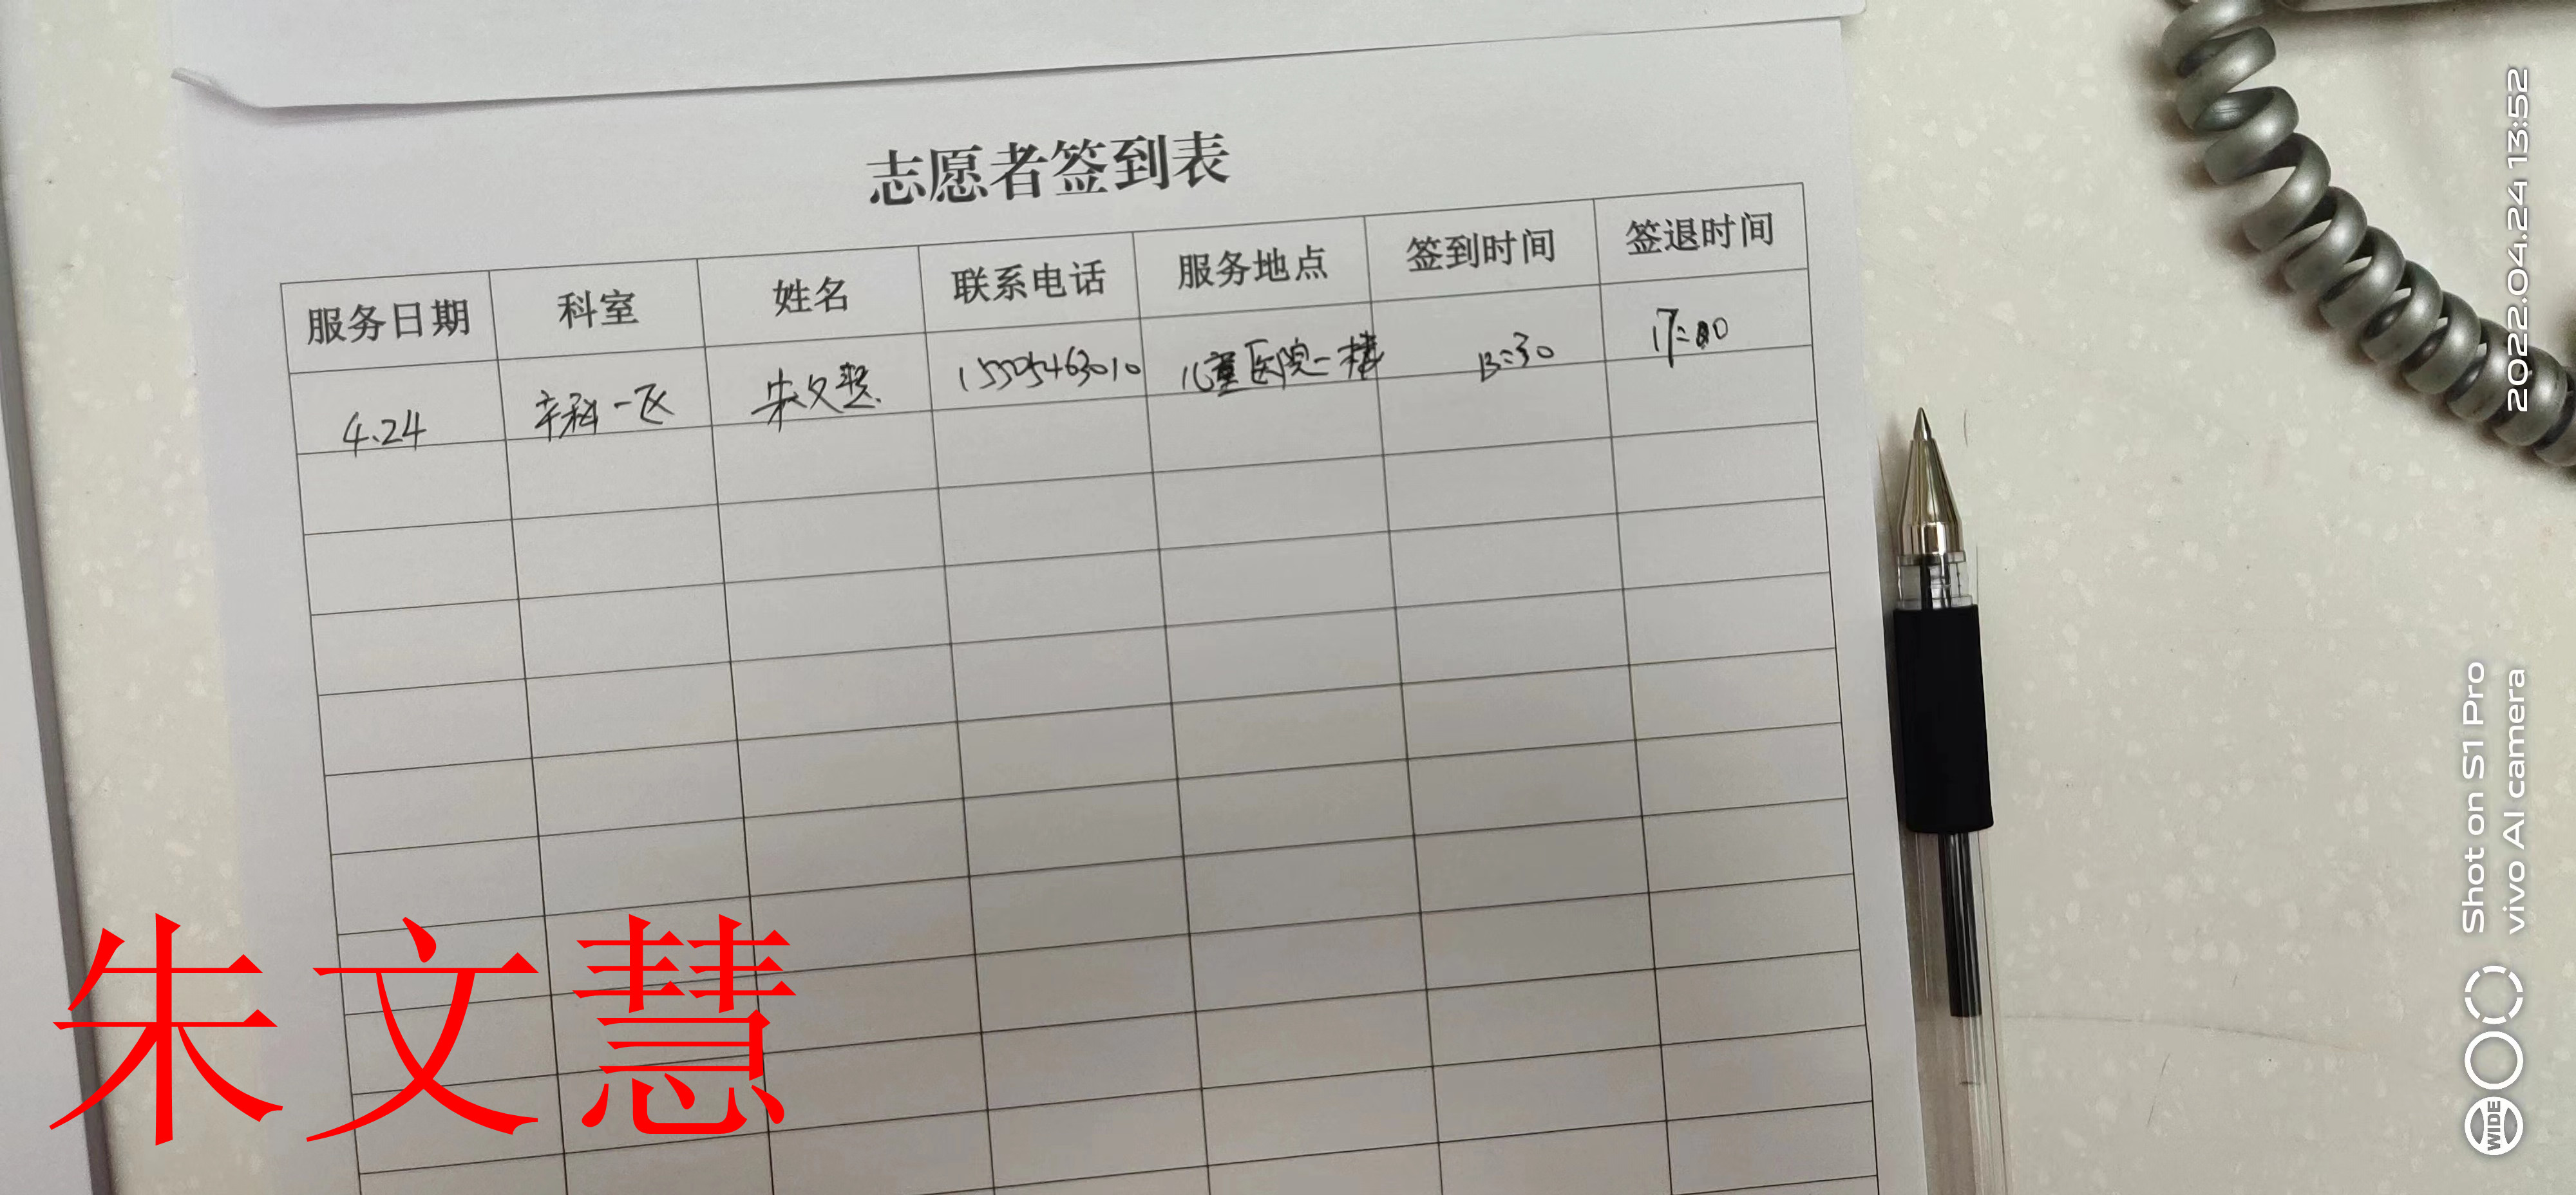 志愿者签到表
服务日期 科室 姓名 联系电话 服务地点 签到时间 签退时间
4.24 产科一区 朱文慧 15505463010 儿童医院一楼 13:30 17:00
朱文慧
2022.04.24 13:52
Shot on S1 Pro
vivo AI camera
WIDE